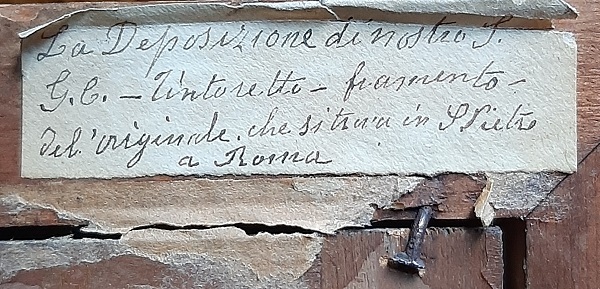 La Deposizione di nostro S.
G. C. – Tintoretto – framento –
del' originale. che si trova in S Pietro
a Roma